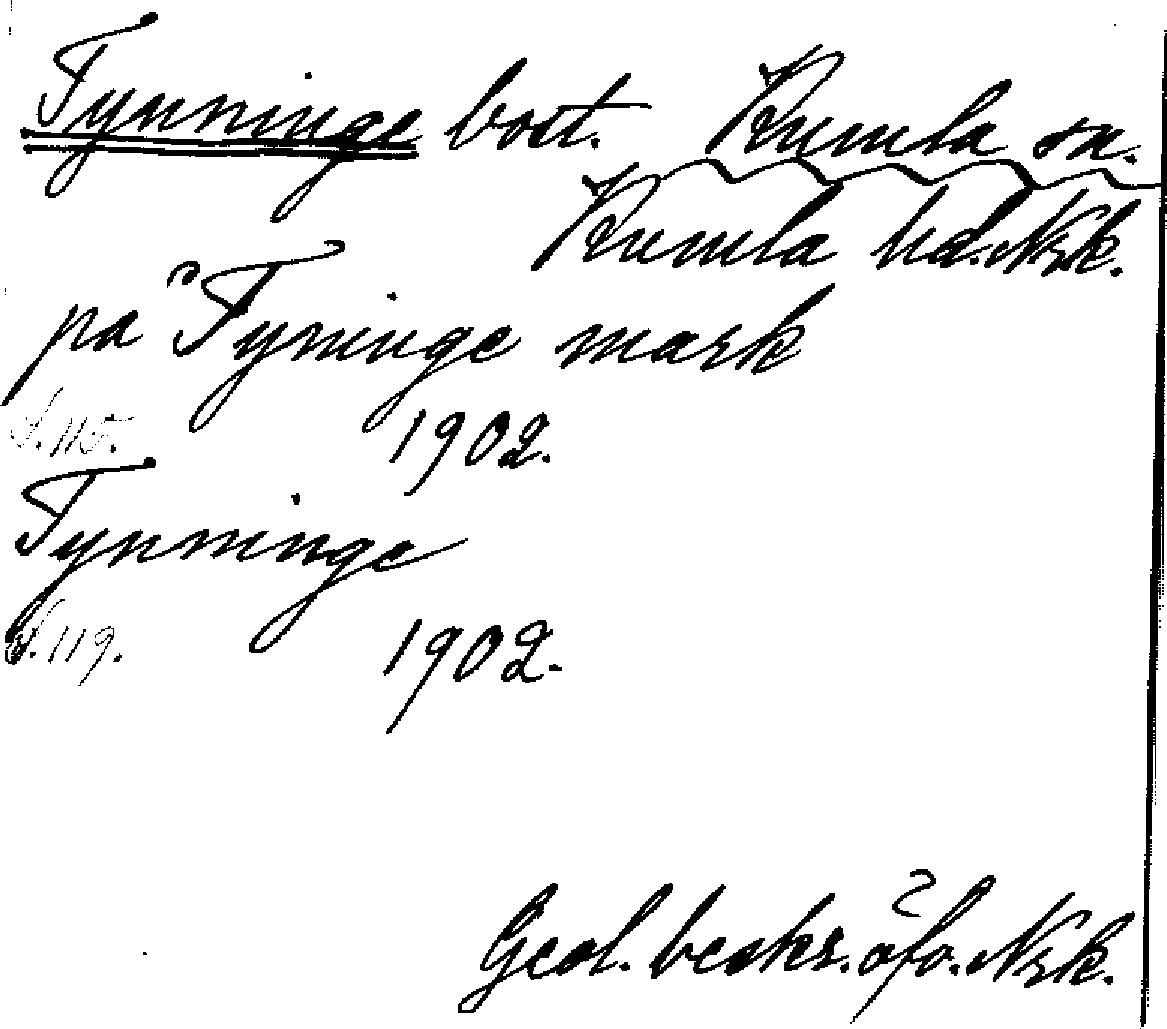 Tynninge bost. Kumla sn.
Kumla hd. Nrk.
på Tyninge mark
S. 115. 1902.
Tynninge
S. 119. 1902.
Geol. beskr. öfv. Nrk.